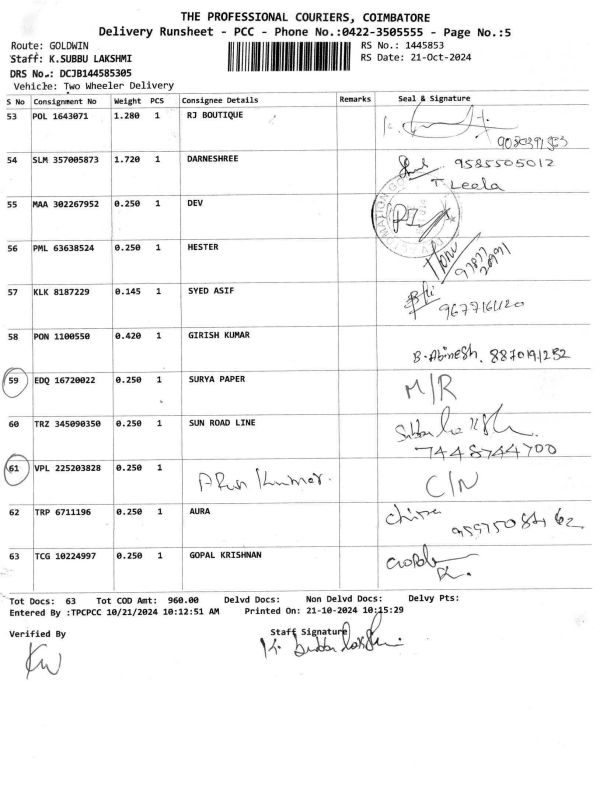 THE PROFESSIONAL COURIERS, COIMBATORE
Delivery Runsheet - PCC - Phone No.:0422-3505555 - Page No.:5
Route: GOLDWIN RS No.: 1445853
Staff: K.SUBBU LAKSHMI RS Date: 21-Oct-2024
DRS No.: DCJB144585305
Vehicle: Two Wheeler Delivery
S No Consignment No Weight PCS Consignee Details Remarks Seal & Signature
53 POL 1643071 1.280 1 RJ BOUTIQUE
54 SLM 357005873 1.720 1 DARNESHREE 9585505012
T. Leela
55 MAA 302267952 0.250 1 DEV
56 PML 63638524 0.250 1 HESTER
57 KLK 8187229 0.145 1 SYED ASIF
9677161120
58 PON 1100550 0.420 1 GIRISH KUMAR
B. Abinesh. 8870191282
59 EDQ 16720022 0.250 1 SURYA PAPER M/R
60 TRZ 345090350 0.250 1 SUN ROAD LINE
7448744700
61 VPL 225203828 0.250 1 Arun Kumar. C/N
62 TRP 6711196 0.250 1 AURA
63 TCG 10224997 0.250 1 GOPAL KRISHNAN
Tot Docs: 63 Tot COD Amt: 960.00 Delvd Docs: Non Delvd Docs: Delvy Pts:
Entered By :TPCPCC 10/21/2024 10:12:51 AM Printed On: 21-10-2024 10:15:29
Verified By Staff Signature
K. Subbu Lakshmi